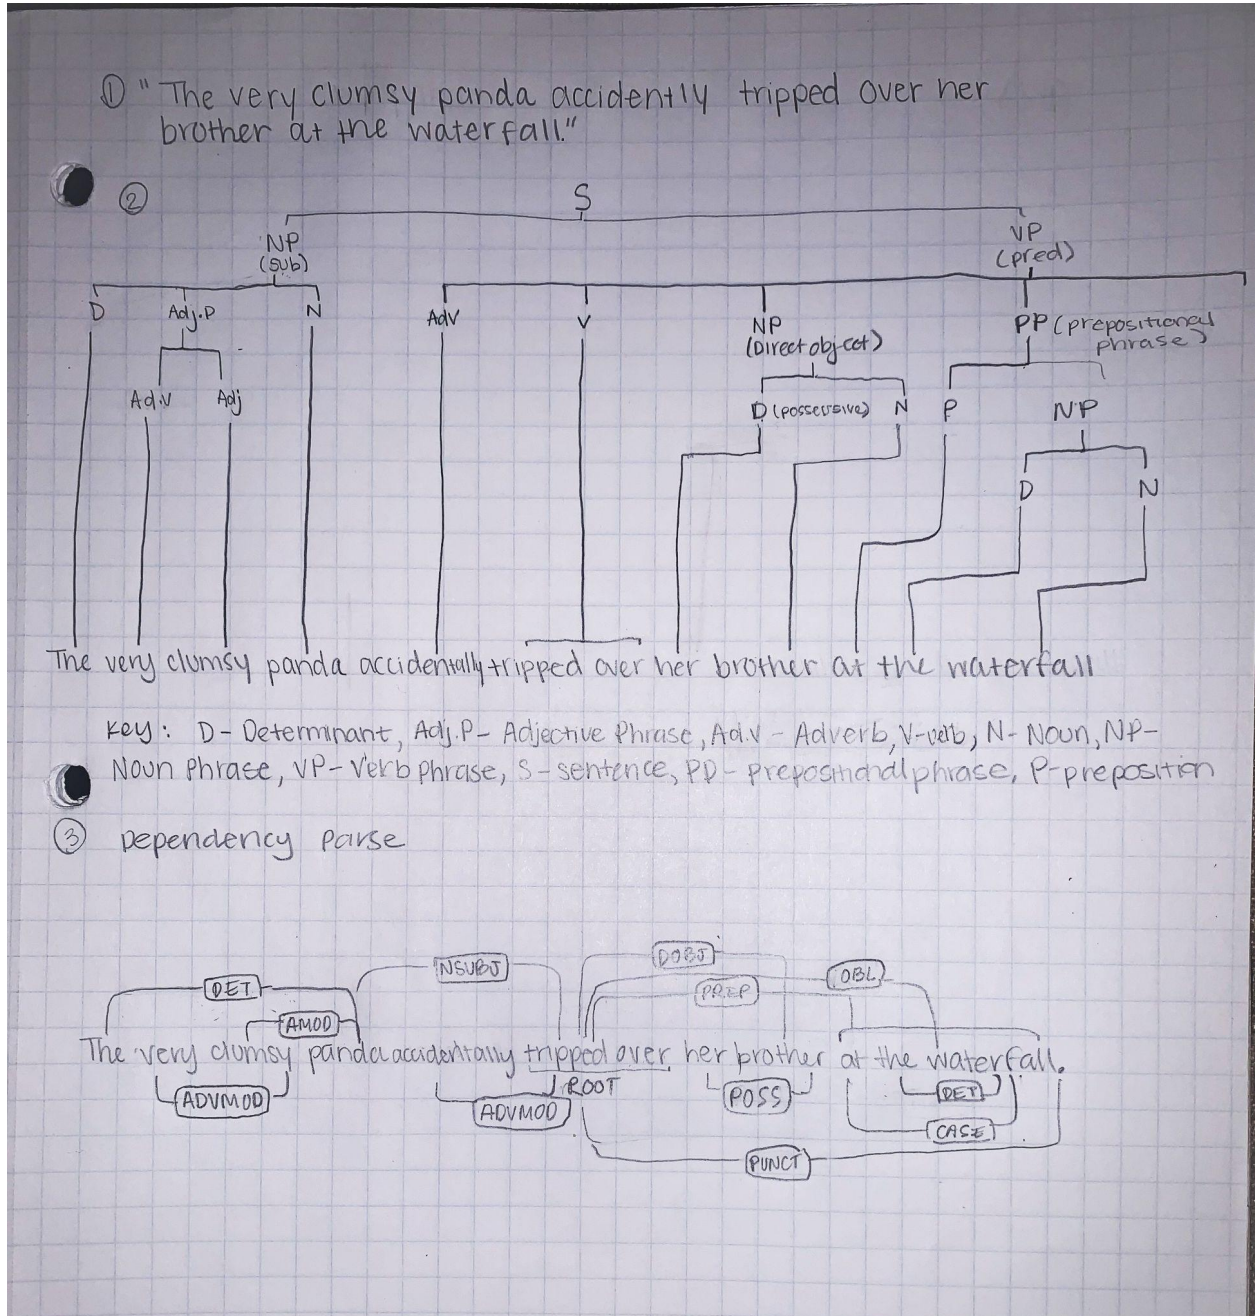 ① "The very clumsy panda accidently tripped over her
brother at the waterfall."
②
S
NP VP
(sub) (pred)
D Adj.P N Adv V NP PP (prepositional
(Direct object) phrase)
Ad.v Adj D (possessive) N P NP
D N
The very clumsy panda accidentally tripped over her brother at the waterfall
Key: D- Determinant, Adj.P- Adjective Phrase, Ad.v - Adverb, V-verb, N- Noun, NP-
Noun Phrase, VP- Verb phrase, S- sentence, PP- prepositional phrase, P-preposition
③ Dependency Parse
NSUBJ DOBJ
DET PREP OBL
AMOD
The very clumsy panda accidentally tripped over her brother at the waterfall.
ROOT
ADVMOD ADVMOD POSS DET
CASE
PUNCT